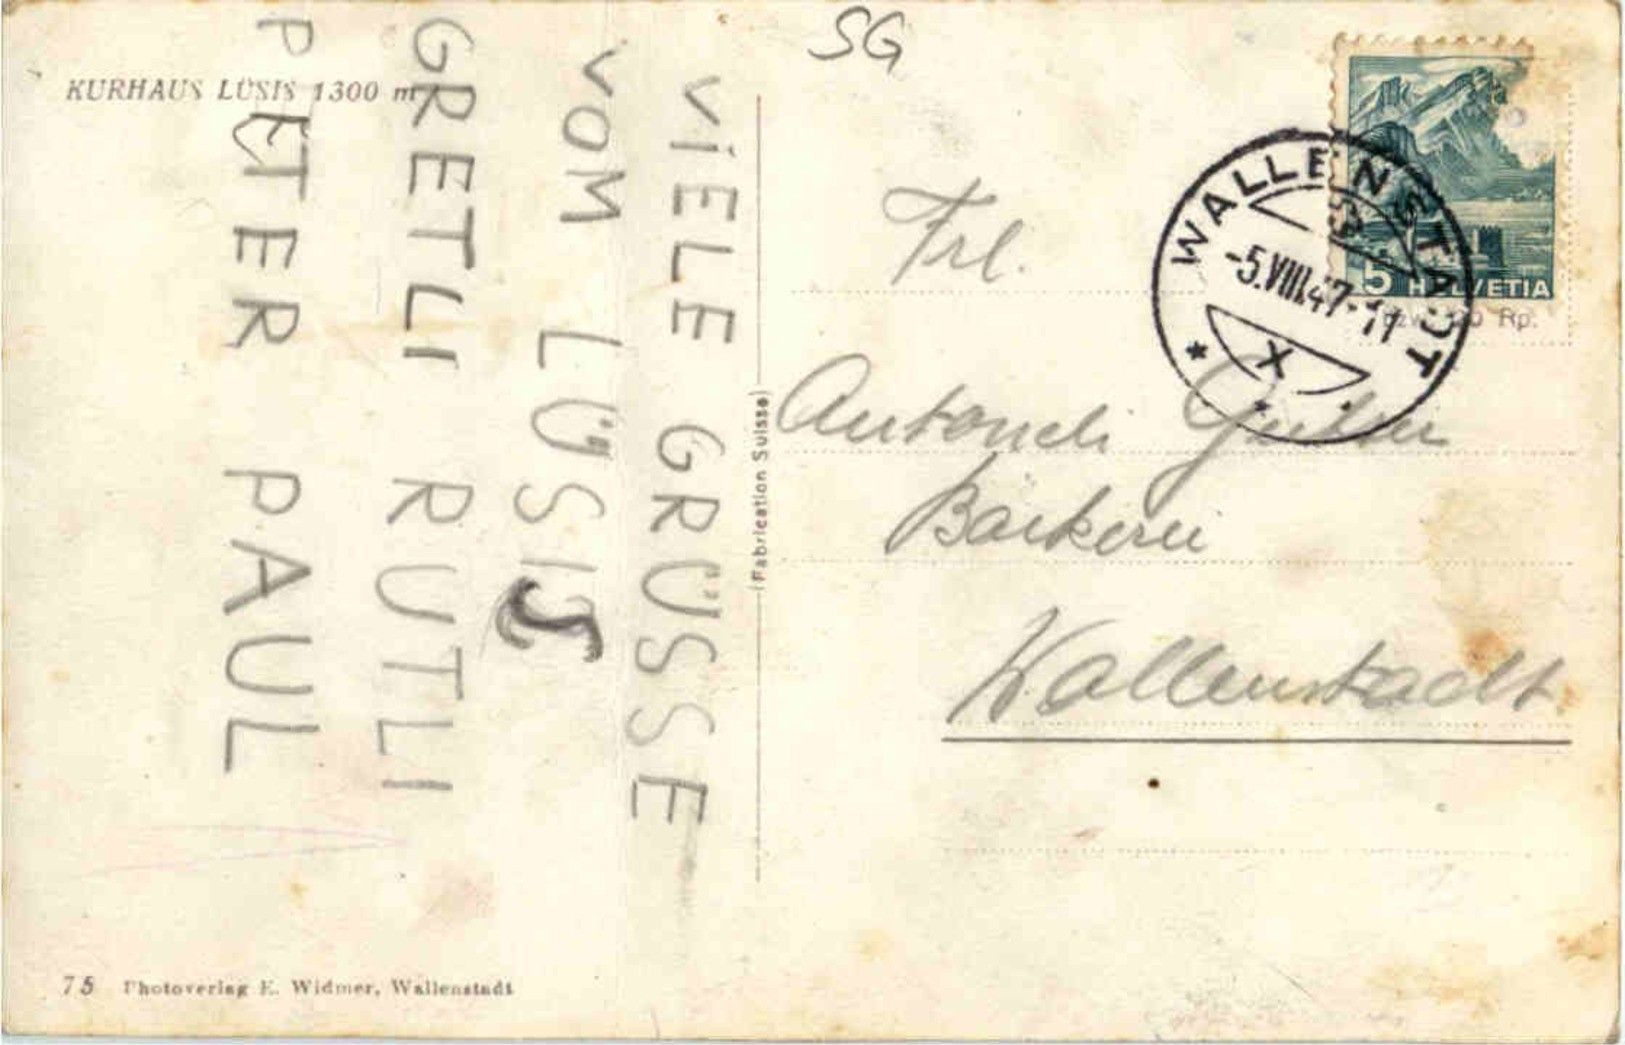 SG
KURHAUS LÜSIS 1300 m
VIELE GRÜSSE
VOM LÜSIS
GRETLI RUTLI
PETER PAUL
(Fabrication Suisse)
WALLENSTADT
-5.VIII.47-17
X
5 HELVETIA
Rp.
Frl.
Bäckerei
Wallenstadt
75 Photoverlag E. Widmer, Wallenstadt